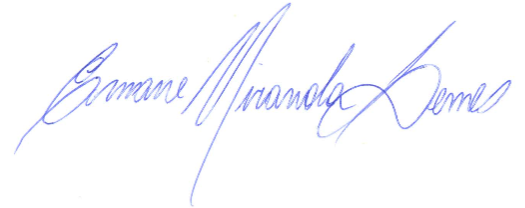 Ernane Miranda Lemes